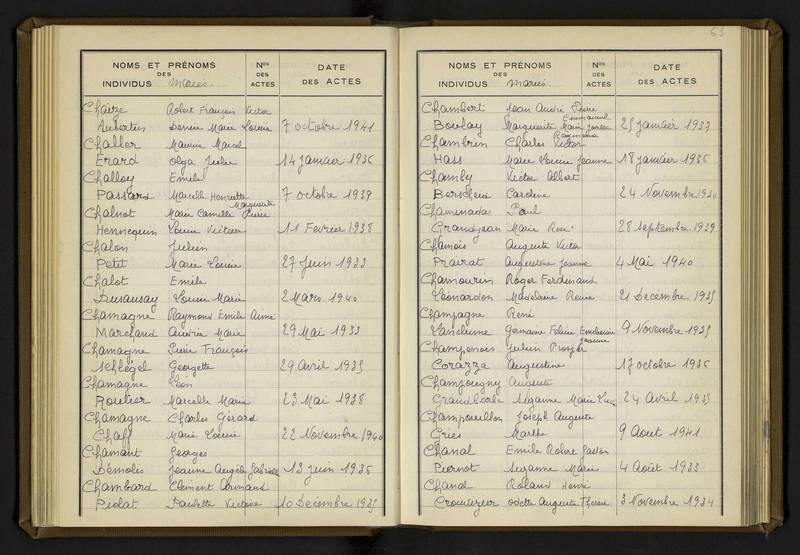 63
NOMS ET PRÉNOMS
DES
INDIVIDUS Mariés
Nos
DES
ACTES
DATE
DES ACTES
Chaize Robert François Victor
Aubertin Marie 7 octobre 1941
Challer Maurice Marcel
Erard Olga Julie 14 janvier 1936
Challoy Emile
Passard Marcelle Henriette Marguerite 7 octobre 1939
Chalnot Marie Camille Pierre
Hennequin Louise 11 Fevrier 1938
Chalon Julien
Petit Marie Louise 27 Juin 1933
Chalot Emile
Dusausay Louise Marie 2 Mars 1940
Chamagne Raymond Emile Aimé
Marchand Marie 29 Mai 1933
Chamagne Pierre François
Schlégel Georgette 29 avril 1935
Chamagne Léon
Roullier Marcelle Marie 23 Mai 1938
Chamagne Charles Gérard
Chaff Marie Louise 22 Novembre 1940
Chamant Georges
Démolis Jeanne Angèle Gabrielle 13 juin 1935
Chambard Clément Armand
Piolat Paulette Victoire 10 Décembre 1935
NOMS ET PRÉNOMS
DES
INDIVIDUS mariés
Nos
DES
ACTES
DATE
DES ACTES
Chambert Jean André Pierre
Boulay Marguerite Marie 25 janvier 1937
Chambrin Charles Victor
Hass Marie Jeanne 18 janvier 1936
Chamby Victor Albert
Berscheid Caroline 24 Novembre
Chaminadas Paul
Grandjean Marie 28 septembre 1939
Chamois Auguste Victor
Prairat Augustine Jeanne 4 Mai 1940
Chamourin Roger Ferdinand
Léonardon Madeleine Reine 21 Decembre 1935
Champagne René
Germaine Félicie 9 Novembre 1935
Champenois Julien Prosper
Corazza Augustine 17 octobre 1936
Champougny Auguste
Suzanne Marie 24 Avril 1935
Champouillon Joseph Auguste
Gries Marthe 9 Aout 1941
Chanal Emile Robert Gaston
Piernot Suzanne Marie 4 Août 1933
Chanal Roland Henri
Crouvizier Odette Augusta Thérèse 3 Novembre 1934